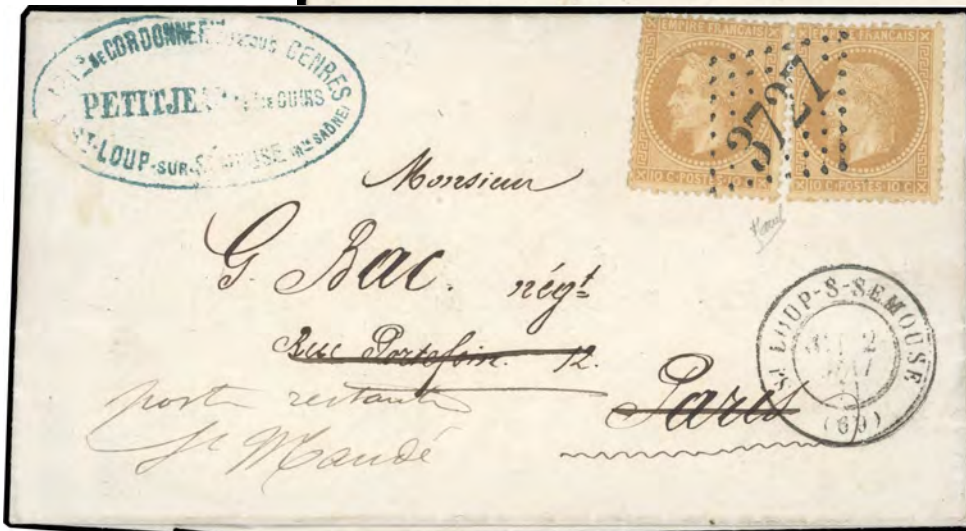 DE CORDONNERIE GENRES
PETITJE CUIRS
ST-LOUP-SUR-SEMOUSE (HTE SAÔNE)
EMPIRE FRANÇAIS
10 C · POSTES · 10 C
EMPIRE FRANÇAIS
10 C · POSTES · 10 C
3727
Monsieur
G. Bac. négt
Rue Portefoin. 12.
Paris
poste restante
St Mandé
ST LOUP-S-SEMOUSE
2
(69)